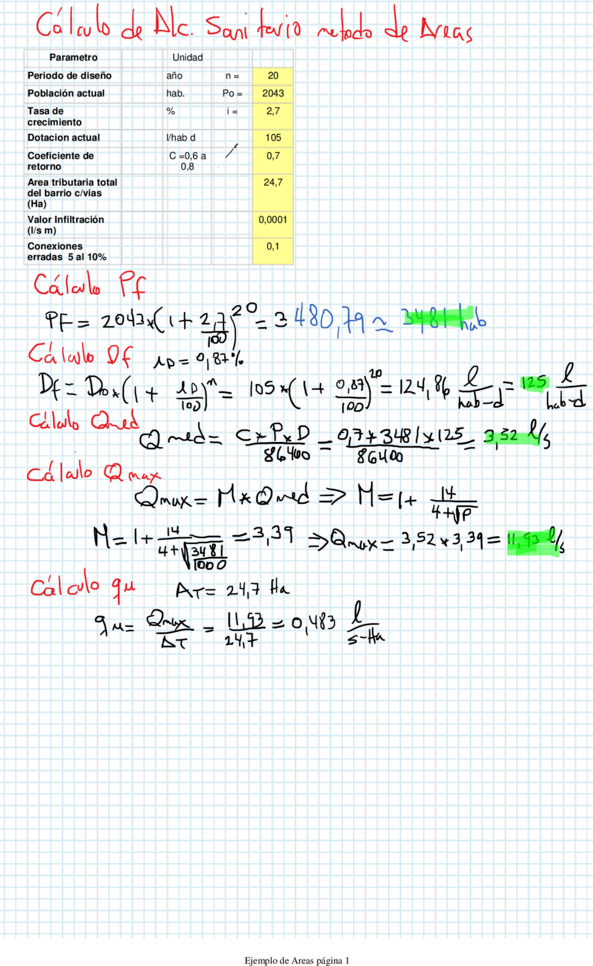 Cálculo de Alc. Sanitario metodo de Areas
Parametro Unidad
Periodo de diseño año n = 20
Población actual hab. Po = 2043
Tasa de crecimiento % i = 2,7
Dotacion actual l/hab d 105
Coeficiente de retorno C =0,6 a 0,8 0,7
Area tributaria total del barrio c/vias (Ha) 24,7
Valor Infiltración (l/s m) 0,0001
Conexiones erradas 5 al 10% 0,1
Cálculo Pf
PF = 2043*(1 + 2,7/100)^20 = 3480,79 ≃ 3481 hab
Cálculo Df ID = 0,87%
Df = Do*(1 + ID/100)^n = 105*(1 + 0,87/100)^20 = 124,86 l/hab-d = 125 l/hab-d
Cálculo Qmed
Qmed = C*P*D/86400 = 0,7*3481*125/86400 = 3,52 l/s
Cálculo Qmax
Qmax = M*Qmed ⇒ M = 1 + 14/4+√P
M = 1 + 14/4+√3481/1000 = 3,39 ⇒ Qmax = 3,52*3,39 = 11,93 l/s
Cálculo qu AT = 24,7 Ha
qu = Qmax/AT = 11,93/24,7 = 0,483 l/s-Ha
Ejemplo de Areas página 1